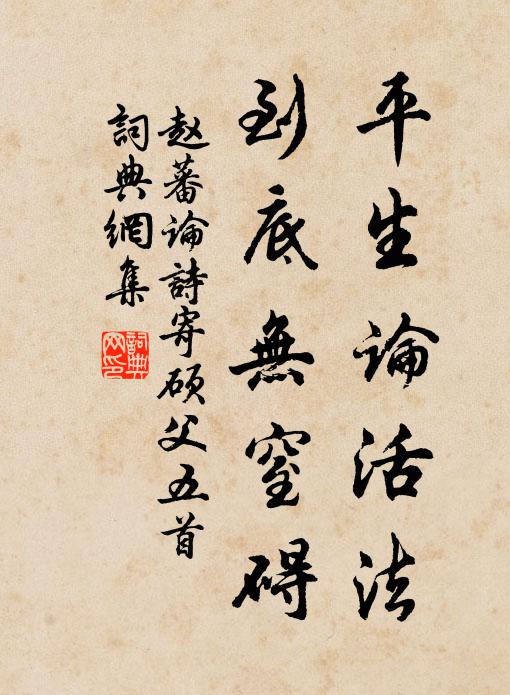 平生論活法
到底無窒碍
赵蕃論詩寄硕父五首
詞典網集
詞典网印